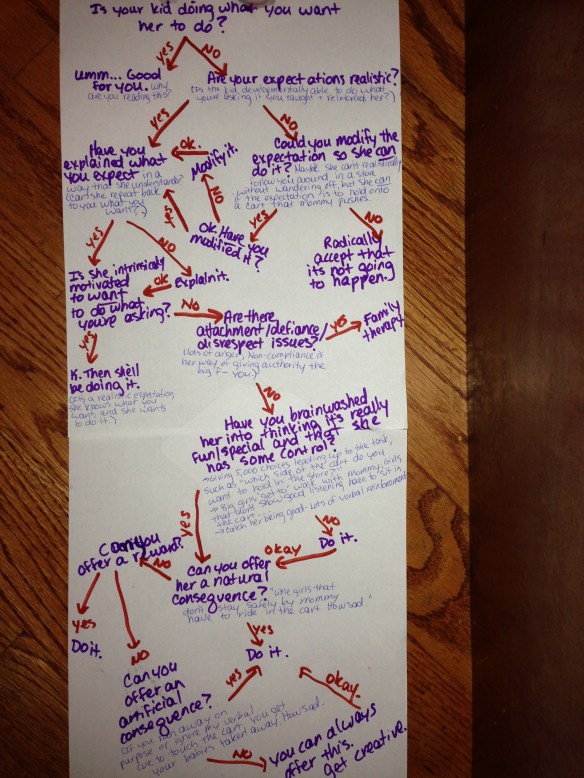 Is your kid doing what you want
her to do?
yes
NO
Umm... Good
for you. Why
are you reading this?
Are your expectations realistic?
(Is the kid developmentally able to do what
you're asking if you taught + reinforced her?)
yes
NO
Have you
explained what
you expect in a
way that she understands?
(Can she repeat back
to you what you
want?)
OK.
Modify it.
Could you modify the
expectation so she can
do it? Maybe she can't realistically
follow you around in a store
without wandering off, but she can
if the expectation is to hold onto
a cart that mommy pushes.
yes
NO
yes
NO
Ok. Have you
modified it?
Radically
accept that
it's not going
to happen.
yes
NO
Is she intrinsically
motivated
to want
to do what
you're asking?
OK
Explain it.
NO
Are there
attachment/defiance/
disrespect issues?
(lots of anger. Non-compliance is
her way of giving authority the
big f- you.)
yes
Family
therapy.
yes
K. Then she'll
be doing it.
(It's a realistic expectation,
she knows what you
want, and she wants
to do it.)
NO
Have you brainwashed
her into thinking it's really
fun/special and that she
has some control?
→ Giving 5,000 choices leading up to the task,
such as "which side of the cart do you
want to hold in the store?"
→ Big girls "get to" walk with mommy. Girls
that don't show good listening have to sit in
the cart.
→ Catch her being good - lots of verbal reinforcement
yes
NO
Do it.
okay
Can you
offer a reward?
NO
Can you offer
her a natural
consequence? "Little girls that
don't stay safely by mommy
have to ride in the cart. How sad."
yes
Do it.
NO
yes
Do it.
Can you
offer an
artificial
consequence?
(If you run away on
purpose or ignore my verbal
cue to touch the cart, you get
your babies taken away. How sad.
yes
okay.
NO
You can always
offer this.
Get creative.